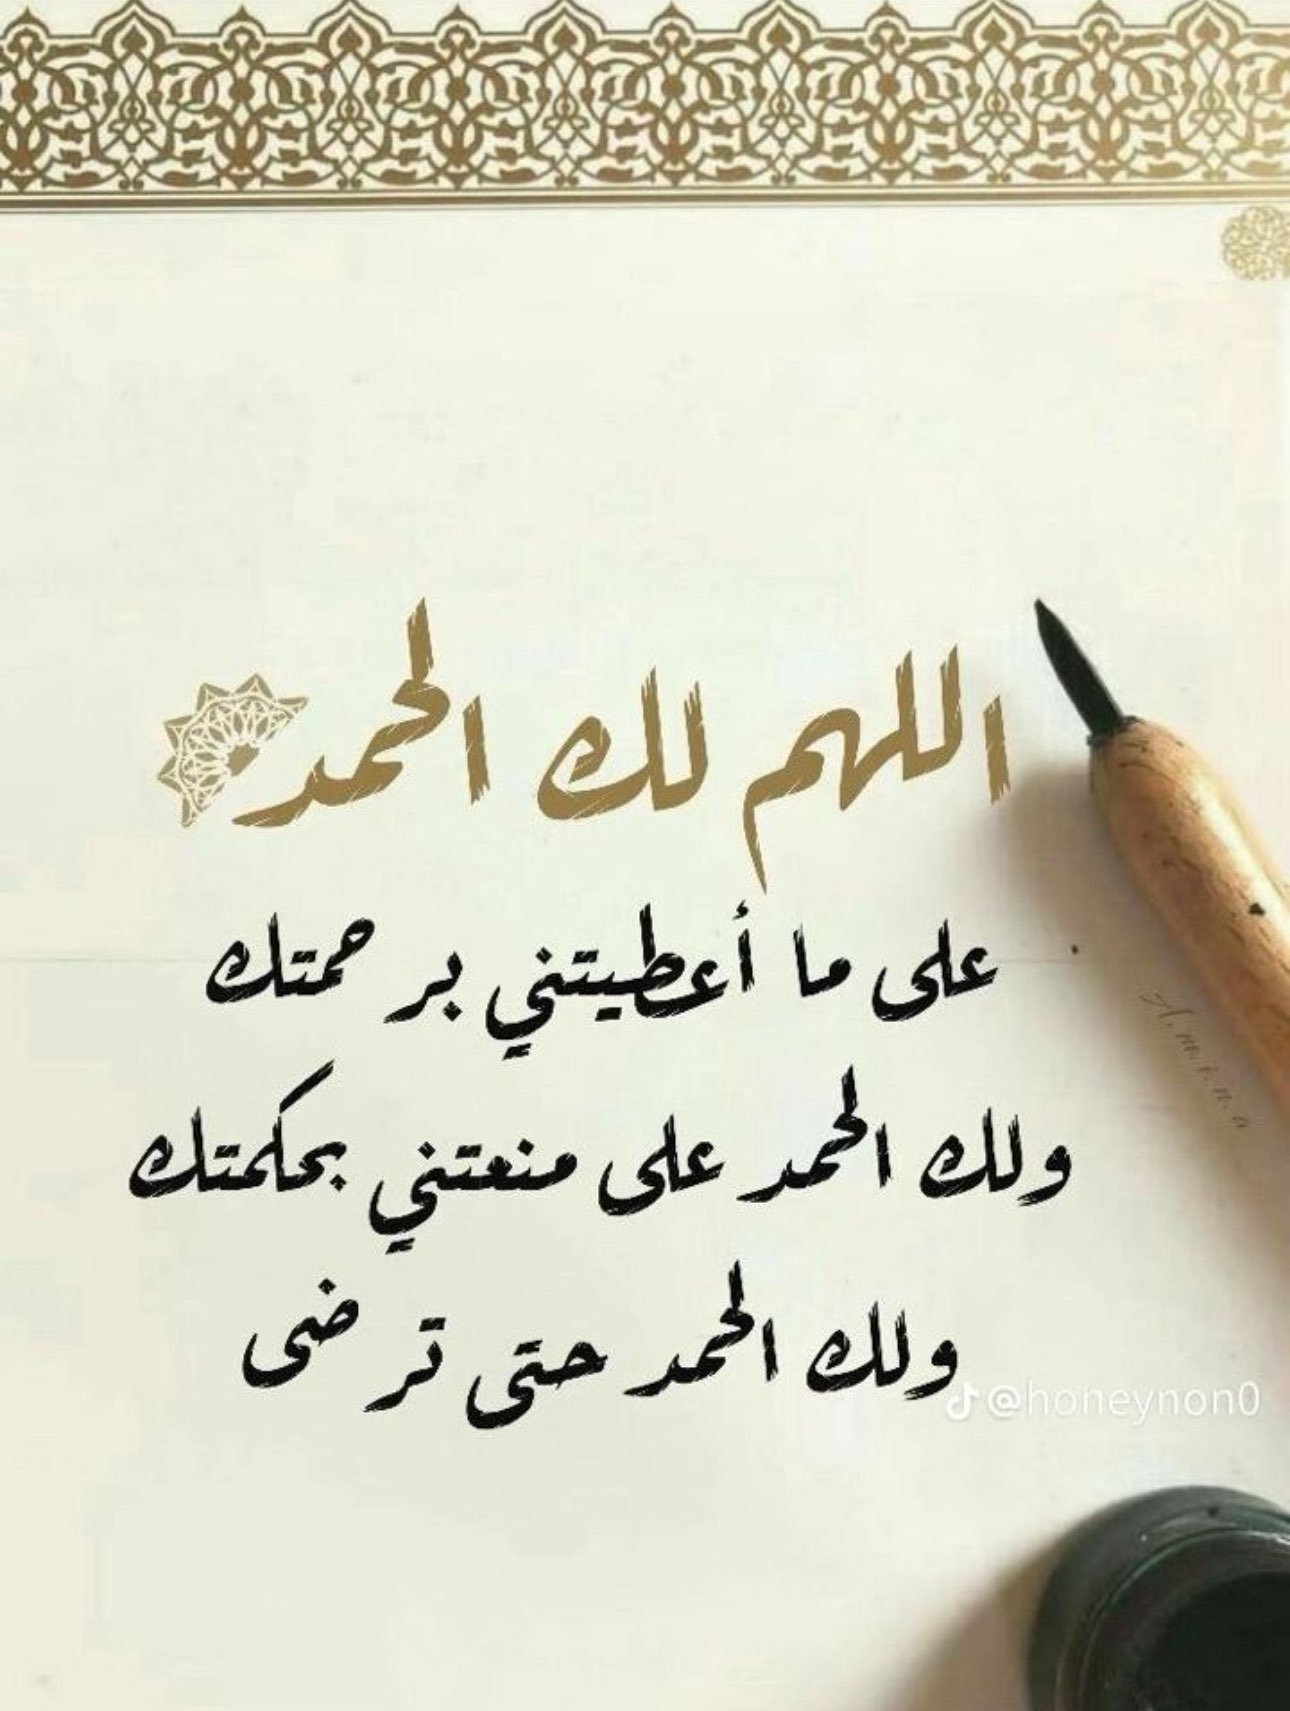 اللهم لك الحمد
على ما أعطيتني برحمتك
ولك الحمد على منعتني بحكمتك
ولك الحمد حتى ترضى
@honeynon0
A.m.i.n.a